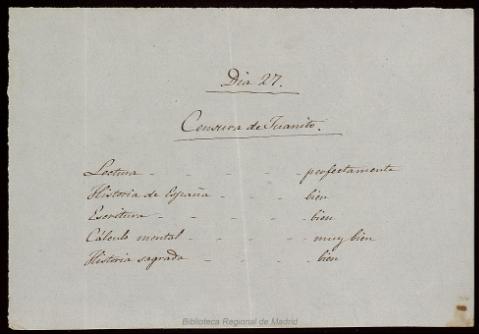 Dia 27.
Censura de Juanito.
Lectura - - - - - perfectamente
Historia de España - - - - bien
Escritura - - - - - bien
Cálculo mental - - - - - muy bien
Historia sagrada - - - - - bien
Biblioteca Regional de Madrid